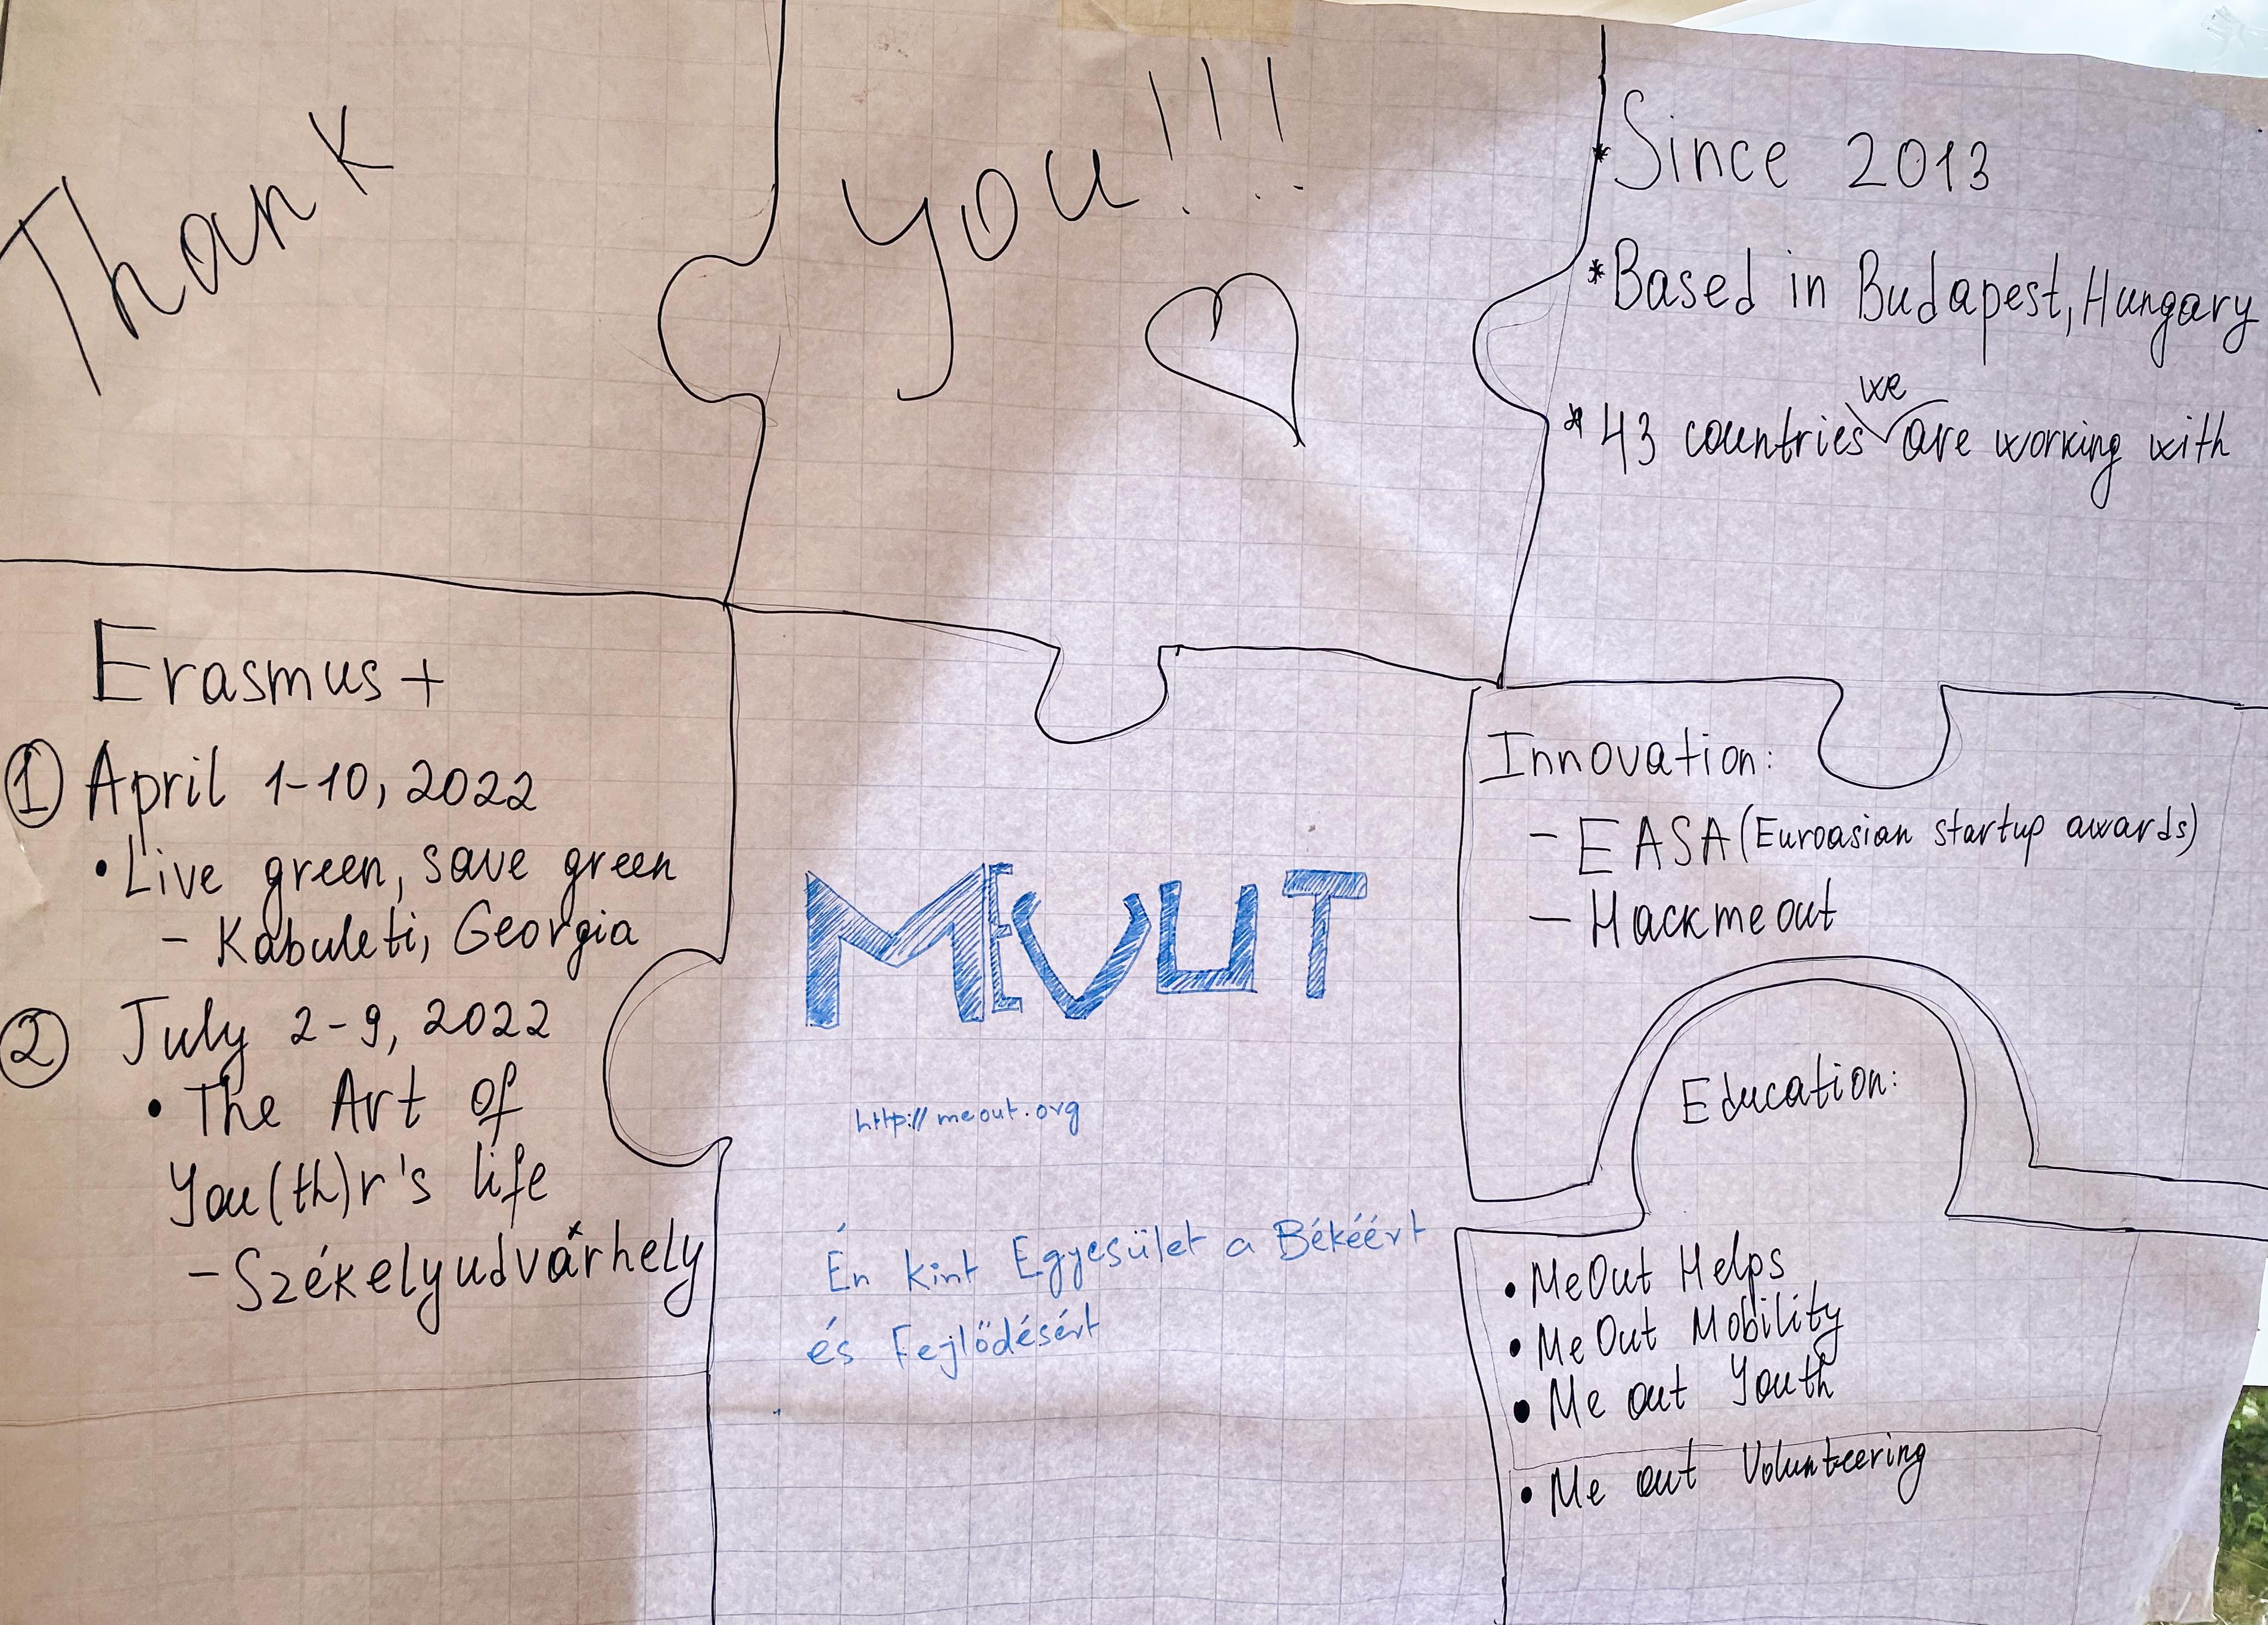 Thank
you!!!
* Since 2013
* Based in Budapest, Hungary
we
* 43 countries are working with
Erasmus+
① April 1-10, 2022
• Live green, save green
- Kabuleti, Georgia
② July 2-9, 2022
• The Art of
You(th)r's life
- Székelyudvárhely
MEOUT
http://meout.org
Én kint Egyesület a Békéért
és Fejlődésért
Innovation:
- EASA (Euroasian startup awards)
- Hackmeout
Education:
• MeOut Helps
• MeOut Mobility
• Me out Youth
• Me out Volunteering